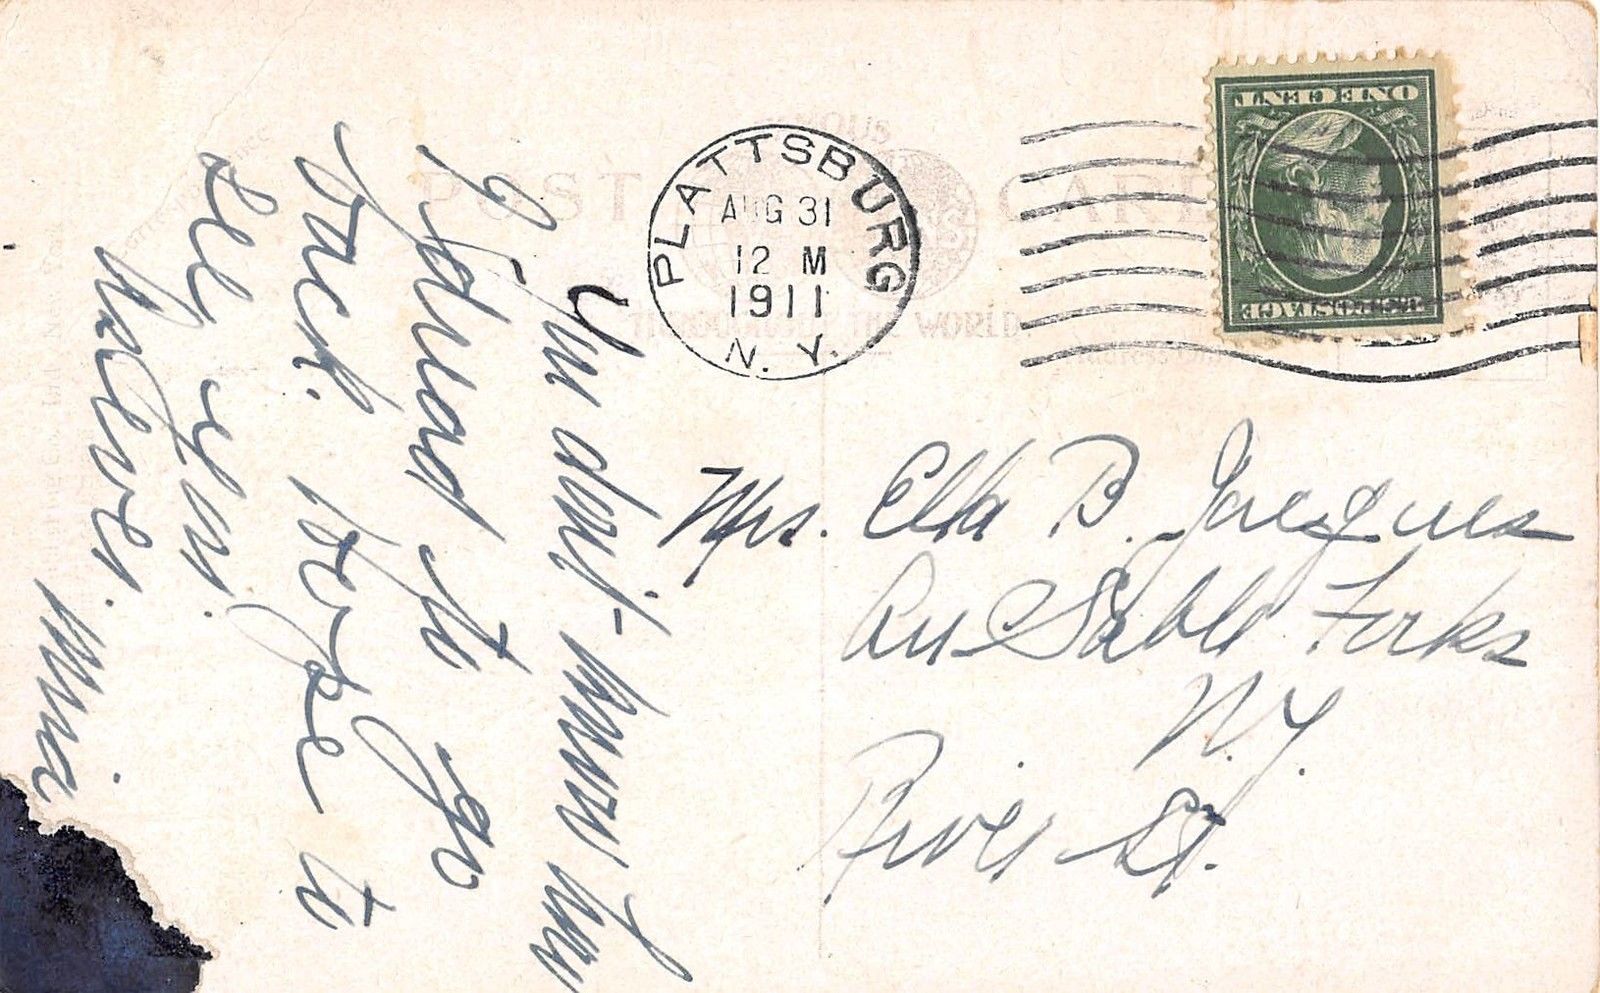 POST CARD
THROUGHOUT THE WORLD.
PLATTSBURG
AUG 31
12 M
1911
N. Y.
ONE CENT
U.S. POSTAGE
You don't know how
I dread to go
back. hope to
see you.
Believe. Mina
Mrs. Ella B. Jacques
Au Sable Forks
N.Y.
River St.